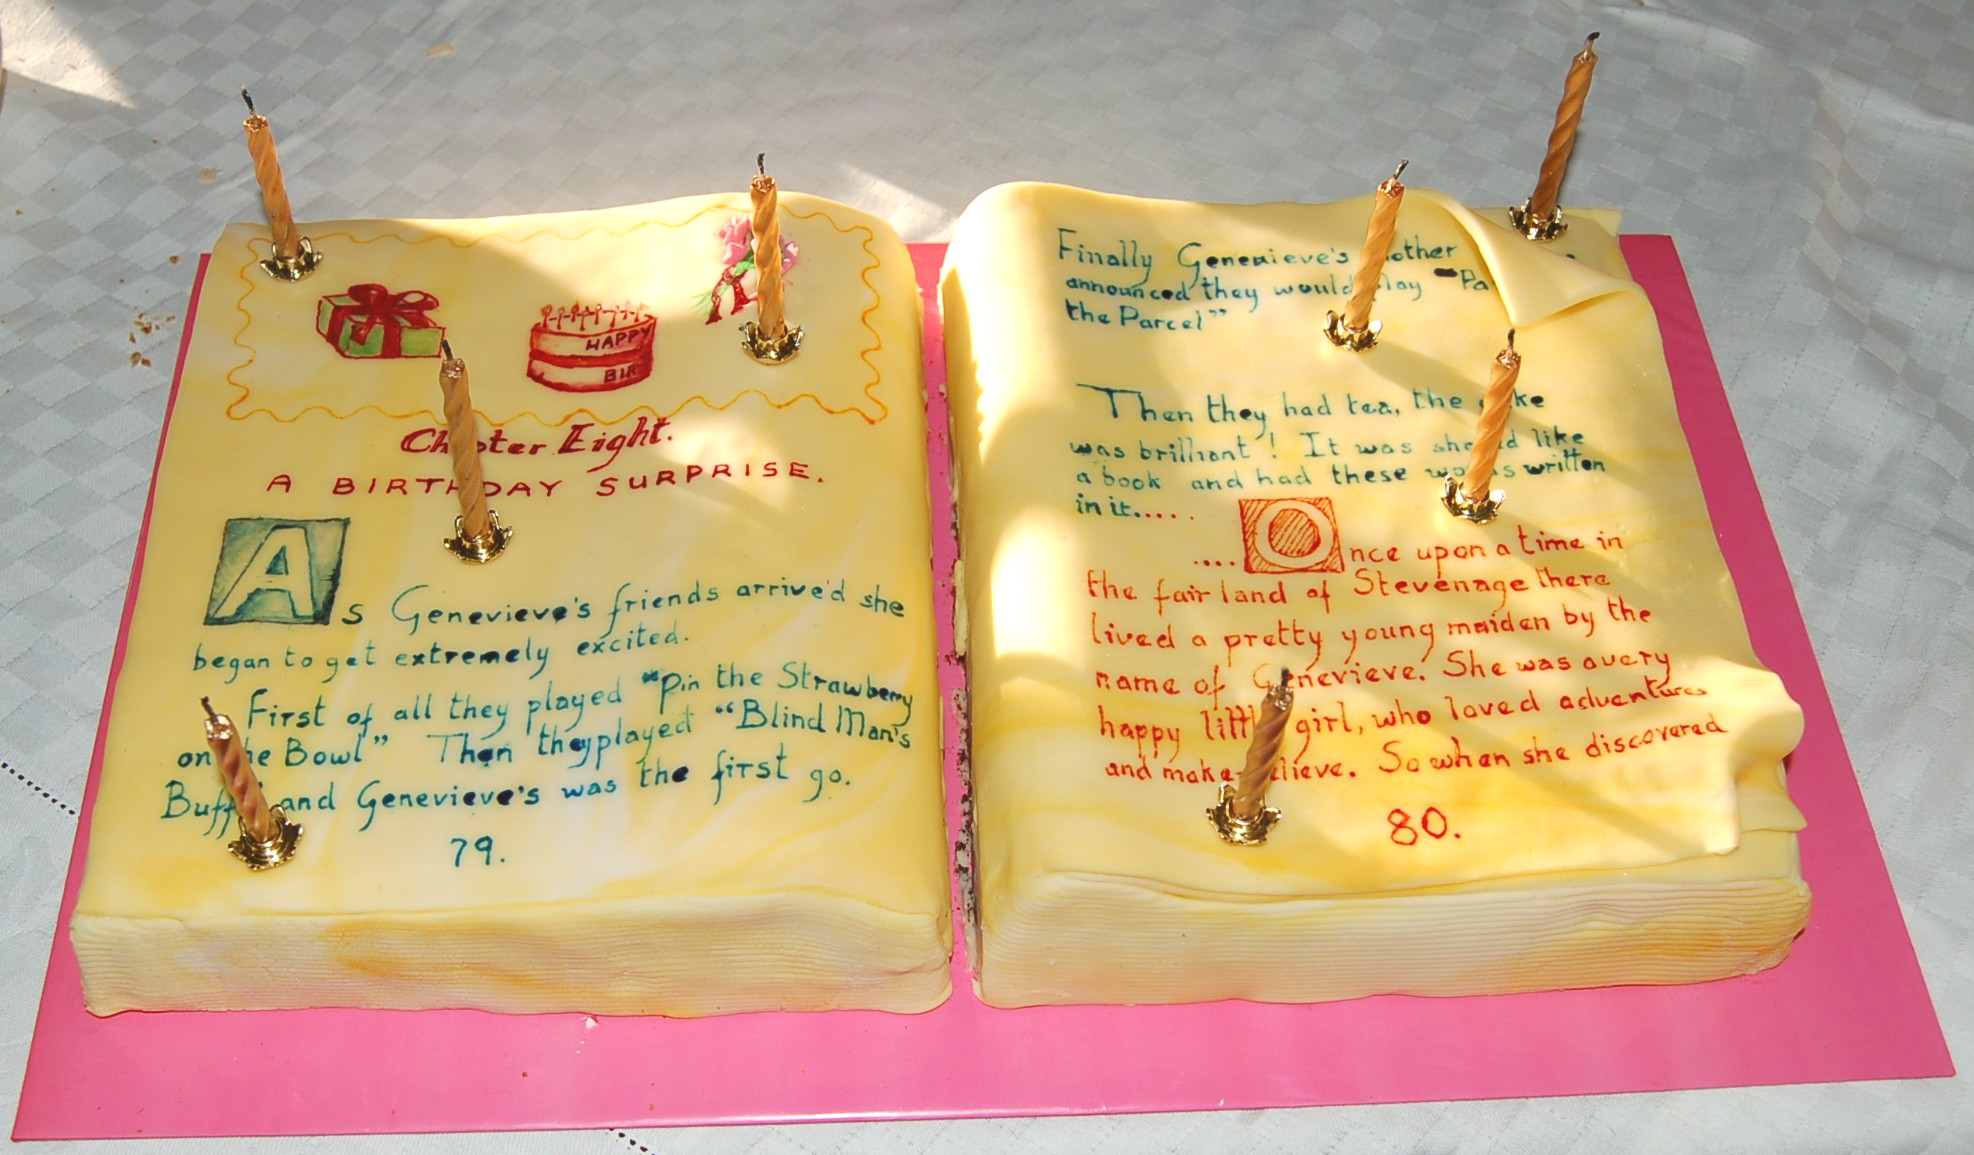 HAPPY
BIR
Chapter Eight.
A BIRTHDAY SURPRISE.
As Genevieve's friends arrive'd she
began to get extremely excited.
First of all they played "Pin the Strawberry
on the Bowl" Then they played "Blind Man's
Buff" and Genevieve's was the first go.
79.
Finally Genevieve's Mother
announced they would play "Pa
the Parcel"
Then they had tea, the cake
was brilliant! It was shaped like
a book and had these words written
in it.....
.... Once upon a time in
the fair land of Stevenage there
lived a pretty young maiden by the
name of Genevieve. She was a very
happy little girl, who loved adventures
and make-believe. So when she discovered
80.